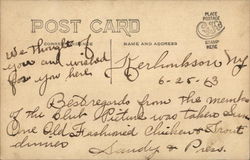 POST CARD
PLACE POSTAGE STAMP HERE
We thought of
you and wished
for you here.
NAME AND ADDRESS
Kerhonkson Ny
6-25-63
Best regards from the
of the Club Picture was taken
One Old Fashioned Chicken & Trout
dinner
Sandy & Pres.